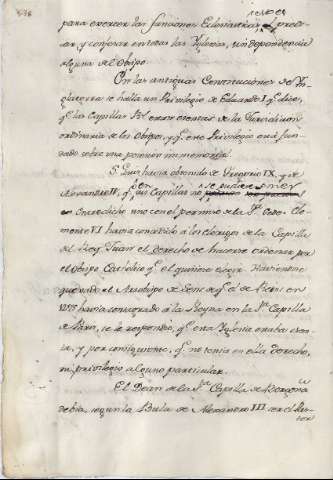 para exercer las funciones Eclesiasticas, predi-
car, y confesar en todas las Yglesias, sin dependencia
alguna del Obispo.
En las antiguas Constituciones de Yn-
glaterra se halla un Privilegio de Eduardo I. que dice,
que las Capillas Rs. eran exentas de la Jurisdiccion
ordinaria de los Obispos, y que este Privilegio está fun-
dado sobre una posesion inmemorial.
Sn. Luis havia obtenido de Gregorio IX, y de
Alexandro IV, que sus Capillas no se pudiesen poner
en Entredicho sino con el permiso de la Sta. Sede. Cle-
mente VI havia concedido á los Clerigos de la Capilla
del Rey Juan el derecho de hacerse ordenar por
el Obispo Catolico que el quisiese elegir. Haviendose
quejado el Arzobispo de Sens de que el de Reims en
1275 havia consagrado á la Reyna en la Sta. Capilla
de Paris, se le respondió, que esta Yglesia estaba exen-
ta, y por consiguiente, que no tenia en ella derecho,
ni privilegio alguno particular.
El Dean de la Sta. Capilla de Borgoña
debia, segun la Bula de Alexandro III. ser el Rec-
tor